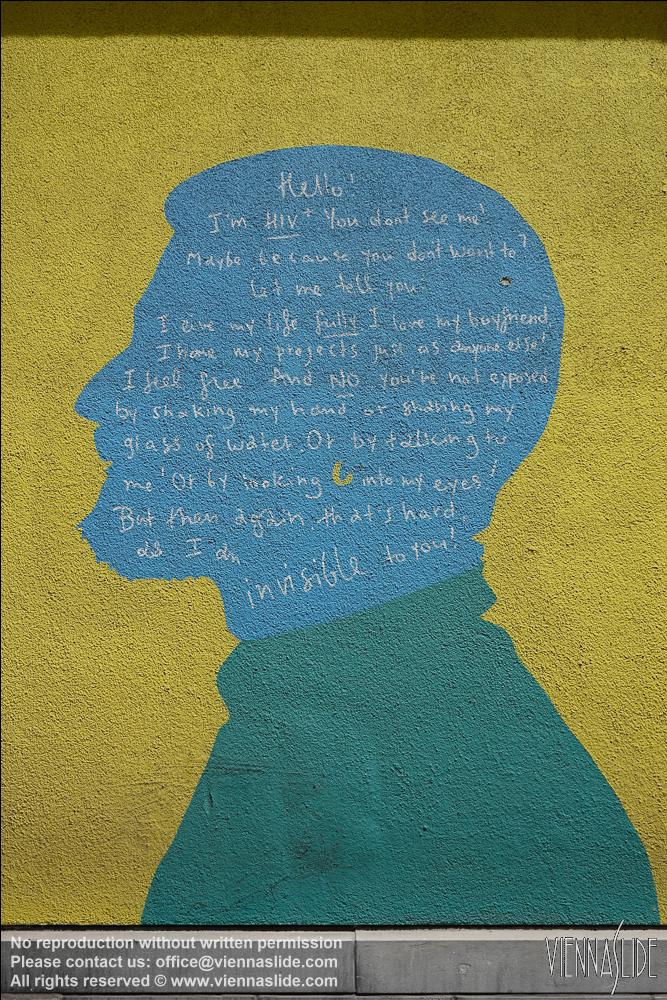 Hello!
I'm HIV+ You dont see me!
Maybe because you don't want to?
Let me tell you.
I live my life fully I love my boyfriend,
I have my projects just as anyone else!
I feel free And NO you're not exposed
by shaking my hand or sharing my
glass of water. Or by talking to
me! Or by looking into my eyes!
But then again, that's hard,
as I am
invisible to you!
No reproduction without written permission
Please contact us: office@viennaslide.com
All rights reserved © www.viennaslide.com
VIENNASLIDE